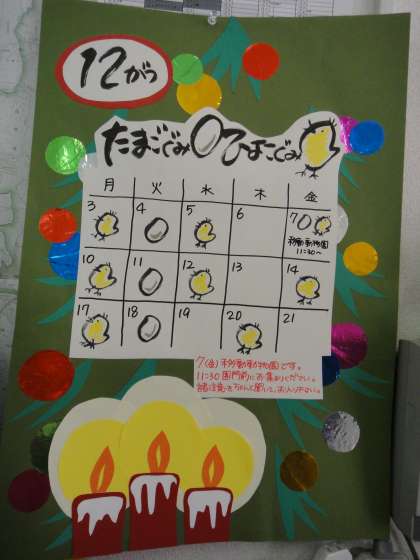 12がつ
たまごぐみ ひよこぐみ
月 火 水 木 金
3 4 5 6 7
移動動物園
11:30〜
10 11 12 13 14
17 18 19 20 21
7(金)移動動物園です。
11:30 園門前にお集まりください。
諸注意をちゃんと聞いて、お入り下さい。